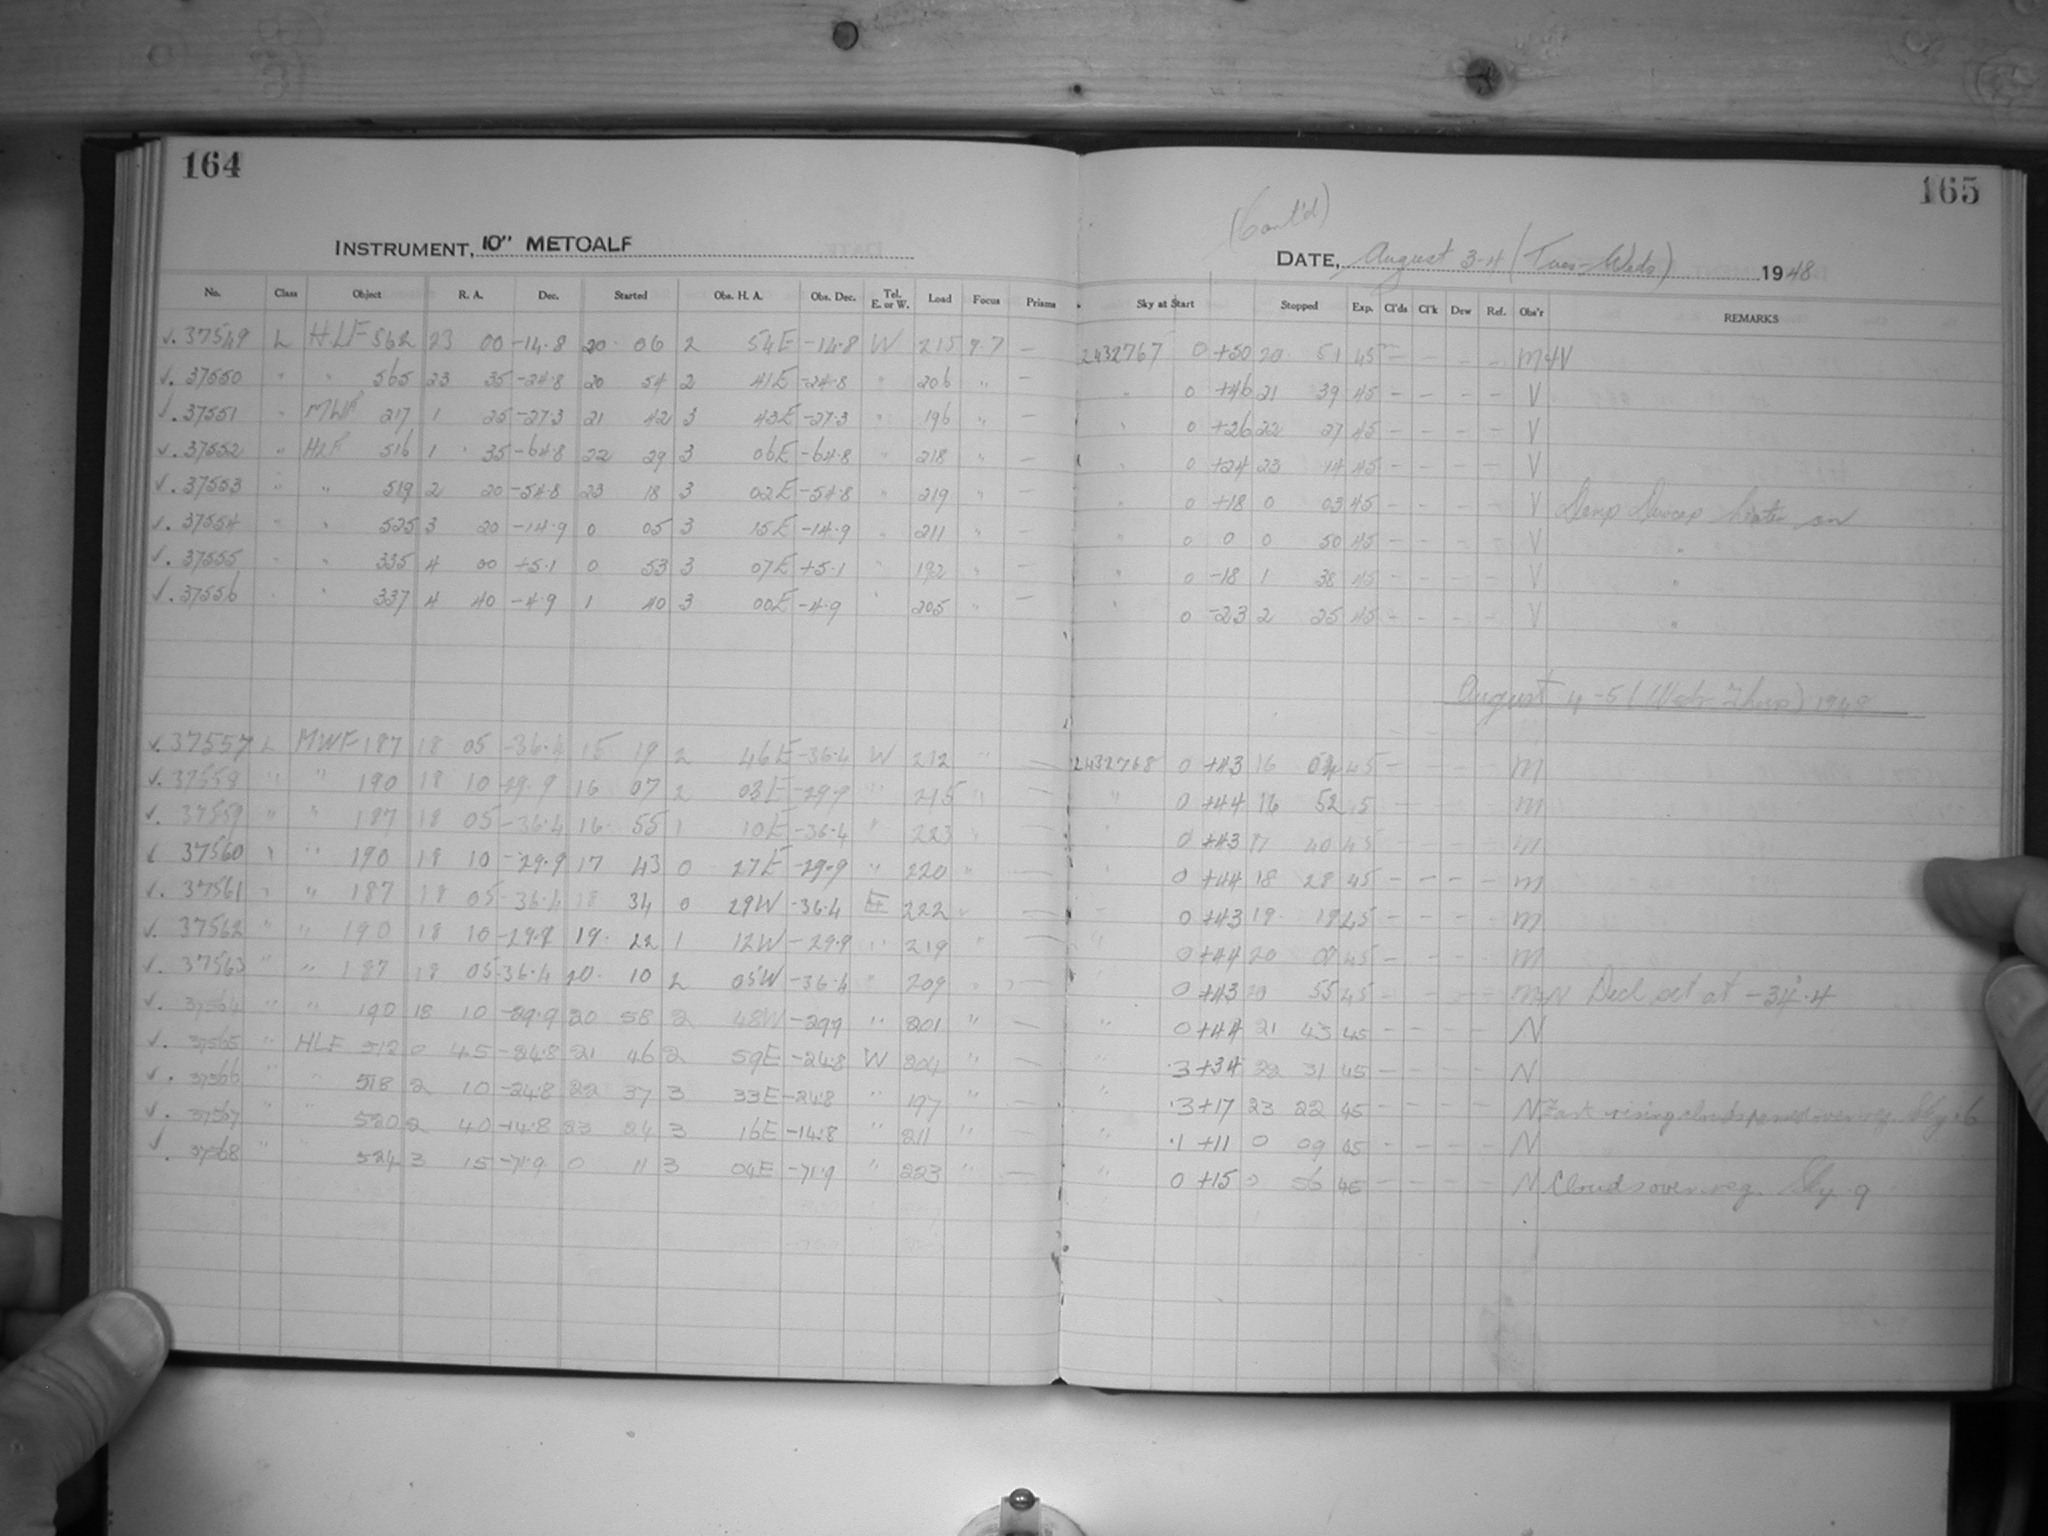 164
165
(Cont'd)
INSTRUMENT, 10" METCALF
DATE, August 3-4 (Tues-Weds) 1948
No. Class Object R. A. Dec. Started Obs. H. A. Obs. Dec. Tel. E. or W. Load Focus Prisms Sky at Start Stopped Exp. Cl'ds Cl'k Dew Ref. Obs'r REMARKS
✓. 37549 L HLF 562 23 00 -14.8 20 06 2 54E -14.8 W 215 9.7 — 2432767 0 +50 20 51 45m — - - - M+V
✓. 37550 " " 565 23 35 -24.8 20 54 2 41E -24.8 " 206 " — " 0 +46 21 39 45 - - - - V
✓. 37551 " MWF 217 1 25 -27.3 21 42 3 43E -27.3 " 196 " — " 0 +26 22 27 45 - - - - V
✓. 37552 " HLF 516 1 35 -64.8 22 29 3 06E -64.8 " 218 " — " 0 +24 23 14 45 - - - - V
✓. 37553 " " 519 2 20 -54.8 23 18 3 02E -54.8 " 219 " — " 0 +18 0 03 45 - - - - V
✓. 37554 " " 525 3 20 -14.9 0 05 3 15E -14.9 " 211 " — " 0 0 0 50 45 - - - - V "
✓. 37555 " " 335 4 00 +5.1 0 53 3 07E +5.1 " 192 " — " 0 -18 1 38 45 - - - - V "
✓. 37556 " " 337 4 40 -4.9 1 40 3 00E -4.9 " 205 " — " 0 -23 2 25 45 - - - - V "
August 4-5 (Weds-Thurs) 1948
✓. 37557 L MWF 187 18 05 -36.4 15 19 2 46E -36.4 W 212 " — 2432768 0 +43 16 04 45 - - - - M
✓. 37558 " " 190 18 10 -29.9 16 07 2 03E -29.9 " 215 " — " 0 +44 16 52 45 - - - - M
✓. 37559 " " 187 18 05 -36.4 16 55 1 10E -36.4 " 223 " — " 0 +43 17 40 45 - - - - M
✓. 37560 " " 190 18 10 -29.9 17 43 0 27E -29.9 " 220 " — " 0 +44 18 28 45 - - - - M
✓. 37561 " " 187 18 05 -36.4 18 34 0 29W -36.4 E 222 " — " 0 +43 19 19 45 - - - - M
✓. 37562 " " 190 18 10 -29.9 19 22 1 12W -29.9 " 219 " — " 0 +44 20 07 45 - - - - M
✓. 37563 " " 187 18 05 -36.4 20 10 2 05W -36.4 " 209 " — " 0 +43 20 55 45 - - - - M+N Decl set at -34°.4
✓. 37564 " " 190 18 10 -29.9 20 58 2 48W -29.9 " 201 " — " 0 +44 21 43 45 - - - - N
✓. 37565 " HLF 512 0 45 -24.8 21 46 2 59E -24.8 W 204 " — " .3 +34 22 31 45 - - - - N
✓. 37566 " " 518 2 10 -24.8 22 37 3 33E -24.8 " 197 " — " .3 +17 23 22 45 - - - - N Fast rising clouds passed over reg. Sky .6
✓. 37567 " " 520 2 40 -14.8 23 24 3 16E -14.8 " 211 " — " .1 +11 0 09 45 - - - - N
✓. 37568 " " 524 3 15 -71.9 0 11 3 04E -71.9 " 223 " — " 0 +15 0 56 45 - - - - N Clouds over reg. Sky .9